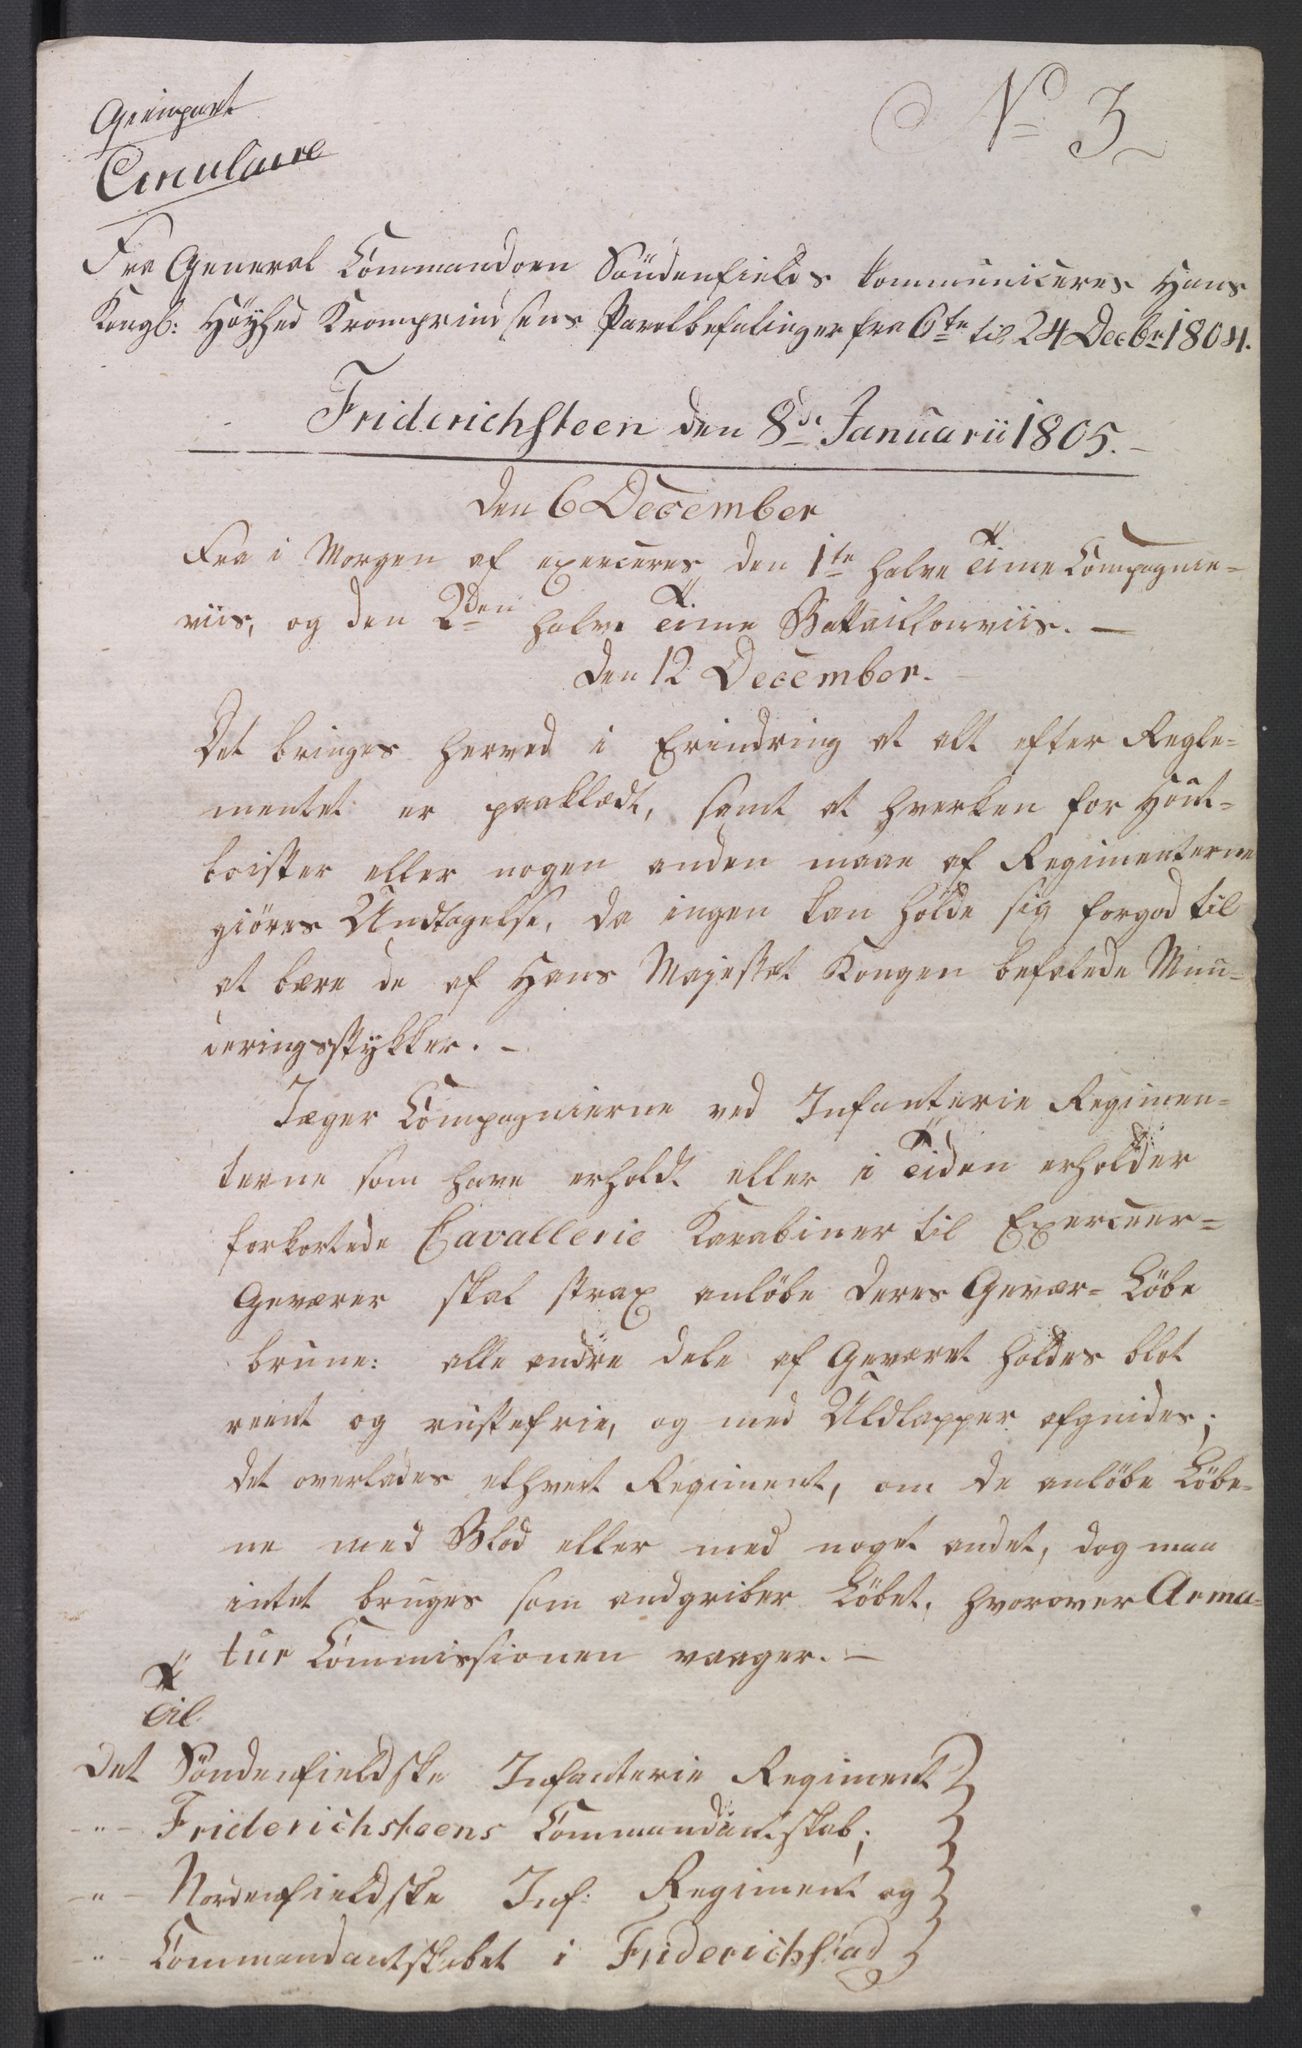 Gienpart
No 3
Circulaire
Fra General Commandoen Søndenfields kommuniceres Hans
Kongl: Høyhed Kronprindsens Parolbefalinger fra 6te til 24 Decbr 1804.
Friderichsteen den 8de Januarii 1805.
Den 6 December
Fra i Morgen af exerceres den 1te halve Time Compagnie-
viis, og den 2den halve Time Bataillonviis.
Den 12 December.
Det bringes herved i Erindring at alt efter Regle-
mentet er paaklædt, samt at hverken for Haut-
boister eller nogen anden maae af Regimenterne
giøres Undtagelse, da ingen kan holde sig forgod til
at bære de af Hans Majestæt Kongen befalede Mun-
deringsstykker.
Jæger Compagnierne ved Infanterie Regimen-
terne som have erholdt eller i Tiden erholder
forkortede Cavallerie Karabiner til Exerceer-
Geværer skal strax anløbe deres Gevær-Løbe
brune: alle andre dele af Geværet holdes blot
reent og rustefrie, og med Uldlapper afgnides;
det overlades ethvert Regiment, om de anløbe Løbe-
ne med Blod eller med noget andet, dog maa
intet bruges som andgriber Løbet, hvorover Arma-
tur Commissionen vaager.
Til
Det Søndenfieldske Infanterie Regiment
-"- Friderichsteens Commandantskab;
-"- Nordenfieldske Inf: Regiment og
-"- Commandantskabet i Friderichstad